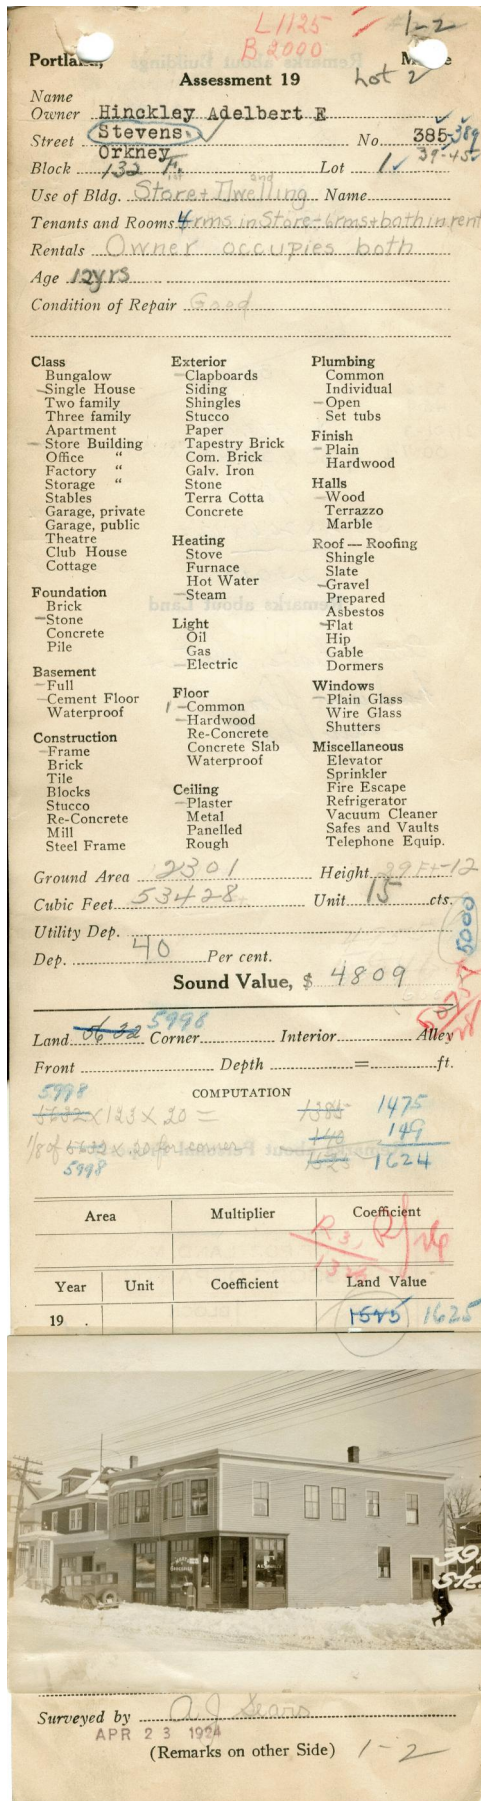 L 1125
B. 2000
1-2
Portland, Maine
Assessment 19
Lot 2
Name
Owner Hinckley Adelbert E
Street Stevens. No. 385-389
Orkney 39-45
Block 132 F. Lot 1
Use of Bldg. Store 1st + Dwelling 2nd Name
Tenants and Rooms 4 rms in Store - 6 rms + bath in rent
Rentals Owner occupies both
Age 12 yrs
Condition of Repair Good
Class
Bungalow
Single House
Two family
Three family
Apartment
Store Building
Office "
Factory "
Storage "
Stables
Garage, private
Garage, public
Theatre
Club House
Cottage
Foundation
Brick
Stone
Concrete
Pile
Basement
Full
Cement Floor
Waterproof
Construction
Frame
Brick
Tile
Blocks
Stucco
Re-Concrete
Mill
Steel Frame
Exterior
Clapboards
Siding
Shingles
Stucco
Paper
Tapestry Brick
Com. Brick
Galv. Iron
Stone
Terra Cotta
Concrete
Heating
Stove
Furnace
Hot Water
Steam
Light
Oil
Gas
Electric
Floor
1 Common
Hardwood
Re-Concrete
Concrete Slab
Waterproof
Ceiling
Plaster
Metal
Panelled
Rough
Plumbing
Common
Individual
Open
Set tubs
Finish
Plain
Hardwood
Halls
Wood
Terrazzo
Marble
Roof — Roofing
Shingle
Slate
Gravel
Prepared
Asbestos
Flat
Hip
Gable
Dormers
Windows
Plain Glass
Wire Glass
Shutters
Miscellaneous
Elevator
Sprinkler
Fire Escape
Refrigerator
Vacuum Cleaner
Safes and Vaults
Telephone Equip.
Ground Area 2301 Height 29 Ft-12
Cubic Feet 53428 Unit 15 cts.
Utility Dep.
Dep. 40 Per cent.
5000
Sound Value, $ 4809
Land 5632 5998 Corner Interior Alley
Front Depth = ft.
COMPUTATION
5998
5632 x 123 x 20 = 1385 1475
1/8 of 5632 x .20 for corner 140 149
5998 1525 1624
Area Multiplier Coefficient
Year Unit Coefficient Land Value
19 . 1525 1625
Surveyed by A J Sears
APR 23 1924
(Remarks on other Side) 1-2